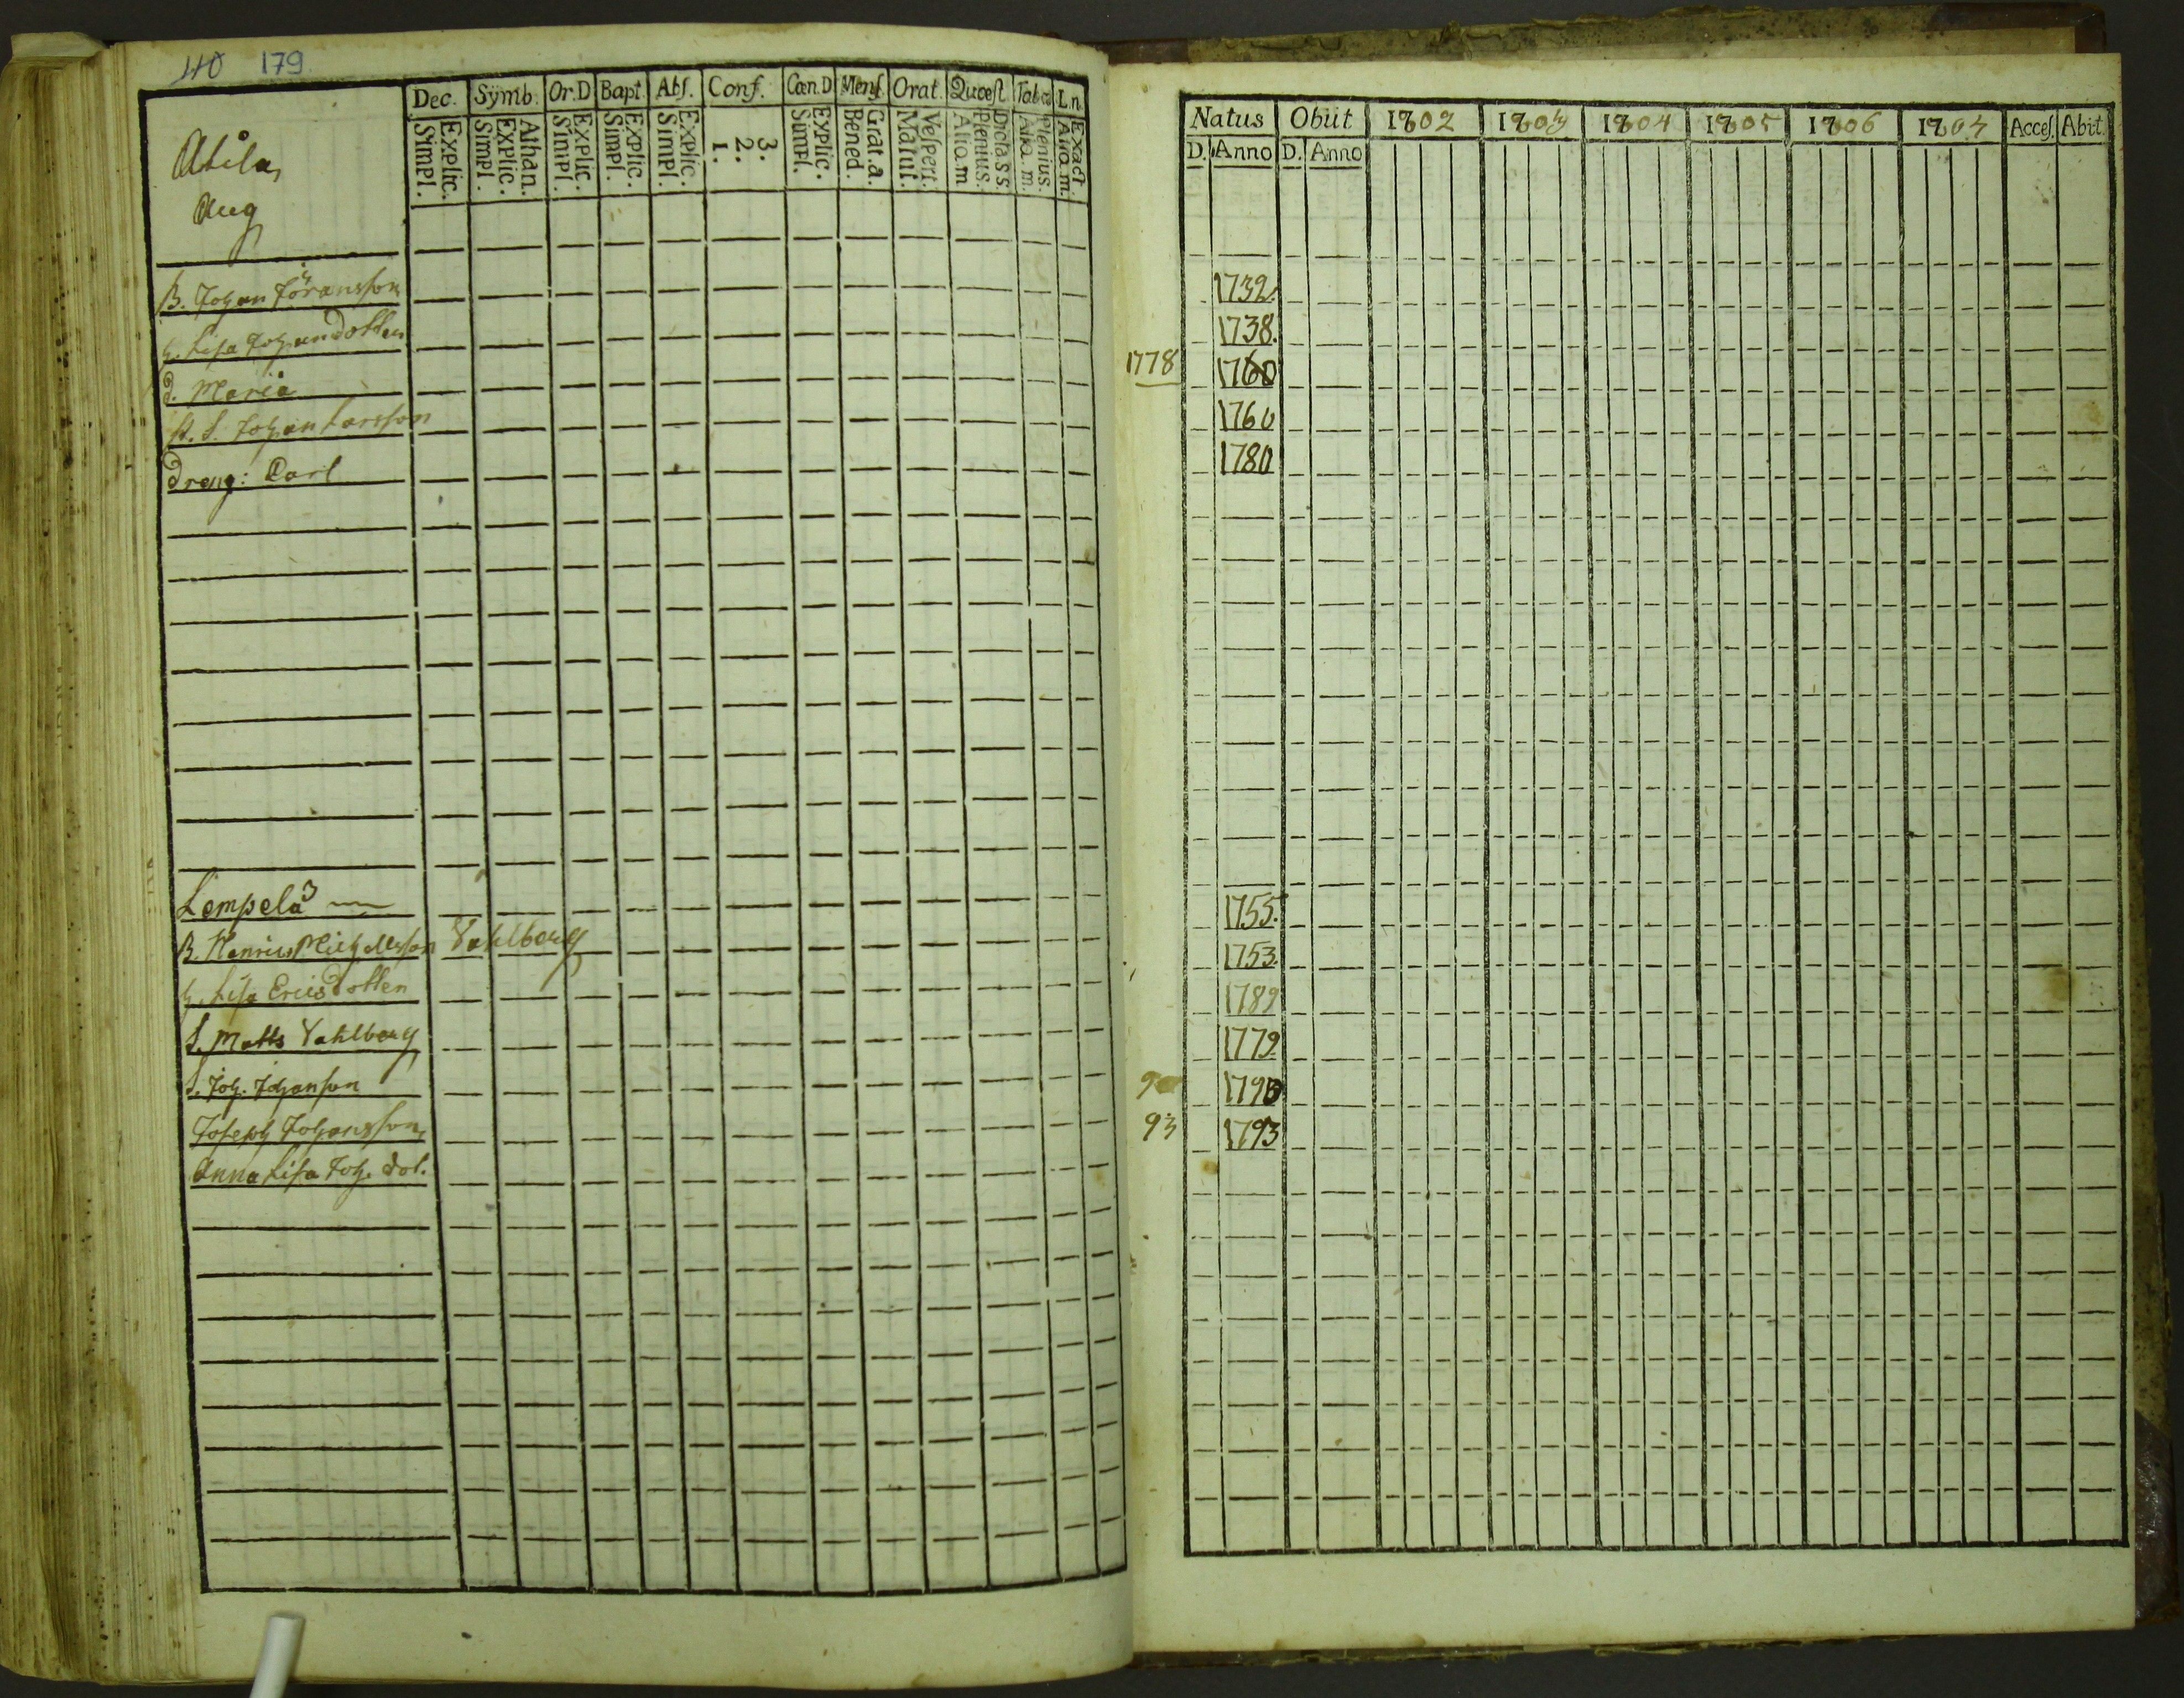 40 179
Dec. Symb. Or.D Bapt. Abs. Conf. Cœn.D Mens. Orat. Quœst. Tab. Ln.
Simpl. Explic. Simpl. Explic. Athan. Simpl. Explic. Simpl. Explic. Simpl. Explic. 1. 2. 3. Simpl. Explic. Bened. Grat. a. Matut. Vespert. Alio. m Plenius. Dicta SS. Alio. m. Plenius. Alio. m. Exact.
Atila,
Aug
B. Johan Jöransson
h. Lisa Johansdotter
d. Maria
st. S. Johan Larsson
Dreng: Carl
Lempelä 3
B. Henrics Michelsson Vahlberg
h. Lisa Ericsdotter
S. Matts Vahlberg
S. Joh. Johanson
Joseph Johansson,
Anna Lisa Joh. dot.
Natus Obiit 1802 1803 1804 1805 1806 1807 Acces. Abit.
D. Anno D. Anno
1732.
1738.
1778 1760
1760
1780
1755.
1753.
1789
1779
90 1790
93 1793